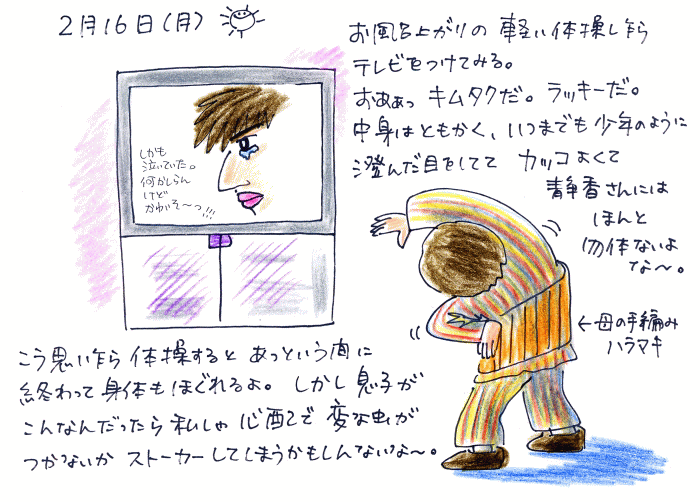 2月16日(月)
お風呂上がりの 軽い体操し乍ら
テレビをつけてみる。
おぁぁっ キムタクだ。ラッキーだ。
中身はともかく、いつまでも少年のように
澄んだ目をしてて カッコよくて
静香さんには
ほんと
勿体ないよ
な〜。
しかも
泣いていた。
何かしらん
けど
かわいそ〜っ!!!
←母の手編み
ハラマキ
こう思い乍ら 体操すると あっという間に
終わって 身体もほぐれるよ。しかし 息子が
こんなんだったら 私しゃ 心配で 変な虫が
つかないか ストーカーしてしまうかもしんないよ〜。